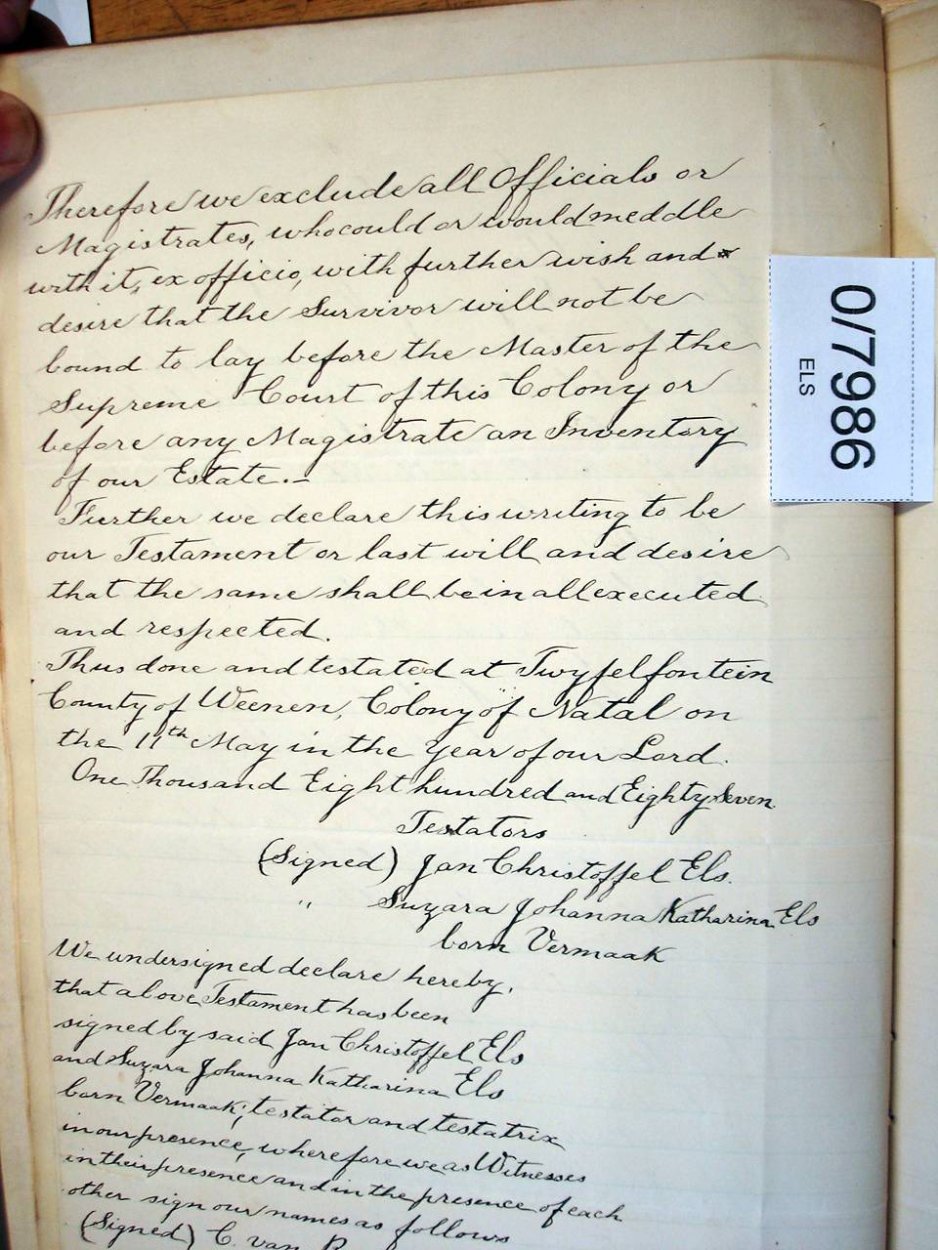 Therefore we exclude all Officials or
Magistrates, who could or would meddle
with it, ex officio, with further wish and
desire that the Survivor will not be
bound to lay before the Master of the
Supreme Court of this Colony or
before any Magistrate an Inventory
of our Estate.—
Further we declare this writing to be
our Testament or last will and desire
that the same shall be in all executed
and respected.
Thus done and testated at Twyfelfontein
County of Weenen, Colony of Natal on
the 11th May in the Year of our Lord.
One Thousand Eight hundred and Eighty Seven
Testators
(Signed) Jan Christoffel Els.
" Suzara Johanna Katharina Els
born Vermaak
We undersigned declare hereby,
that above Testament has been
signed by said Jan Christoffel Els
and Suzara Johanna Katharina Els
born Vermaak, testator and testatrix
in our presence, wherefore we as Witnesses
in their presence and in the presence of each
other sign our names as follows
(Signed) C. van
0/7986
ELS